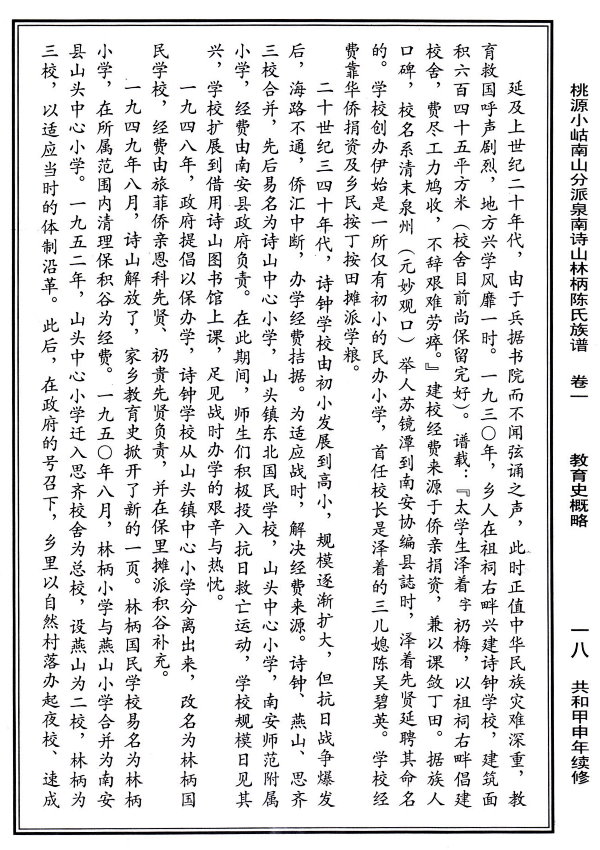 桃源小岵南山分派泉南诗山林柄陈氏族谱 卷一 教育史概略 一八 共和甲申年续修
延及上世纪二十年代，由于兵据书院而不闻弦诵之声，此时正值中华民族灾难深重，教
育救国呼声剧烈，地方兴学风靡一时。一九三〇年，乡人在祖祠右畔兴建诗钟学校，建筑面
积六百四十五平方米（校舍目前尚保留完好）。谱载：『太学生泽着字礽梅，以祖祠右畔倡建
校舍，费尽工力鸠收，不辞艰难劳瘁。』建校经费来源于侨亲捐资，兼以课敛丁田。据族人
口碑，校名系清末泉州（元妙观口）举人苏镜潭到南安协编县誌时，泽着先贤延聘其命名
的。学校创办伊始是一所仅有初小的民办小学，首任校长是泽着的三儿媳陈吴碧英。学校经
费靠华侨捐资及乡民按丁按田摊派学粮。
二十世纪三四十年代，诗钟学校由初小发展到高小，规模逐渐扩大，但抗日战争爆发
后，海路不通，侨汇中断，办学经费拮据。为适应战时，解决经费来源。诗钟、燕山、思齐
三校合并，先后易名为诗山中心小学，山头镇东北国民学校，山头中心小学，南安师范附属
小学，经费由南安县政府负责。在此期间，师生们积极投入抗日救亡运动，学校规模日见其
兴，学校扩展到借用诗山图书馆上课，足见战时办学的艰辛与热忱。
一九四八年，政府提倡以保办学，诗钟学校从山头镇中心小学分离出来，改名为林柄国
民学校，经费由旅菲侨亲恩科先贤、礽贵先贤负责，并在保里摊派积谷补充。
一九四九年八月，诗山解放了，家乡教育史掀开了新的一页。林柄国民学校易名为林柄
小学，在所属范围内清理保积谷为经费。一九五〇年八月，林柄小学与燕山小学合并为南安
县山头中心小学。一九五二年，山头中心小学迁入思齐校舍为总校，设燕山为二校，林柄为
三校，以适应当时的体制沿革。此后，在政府的号召下，乡里以自然村落办起夜校、速成